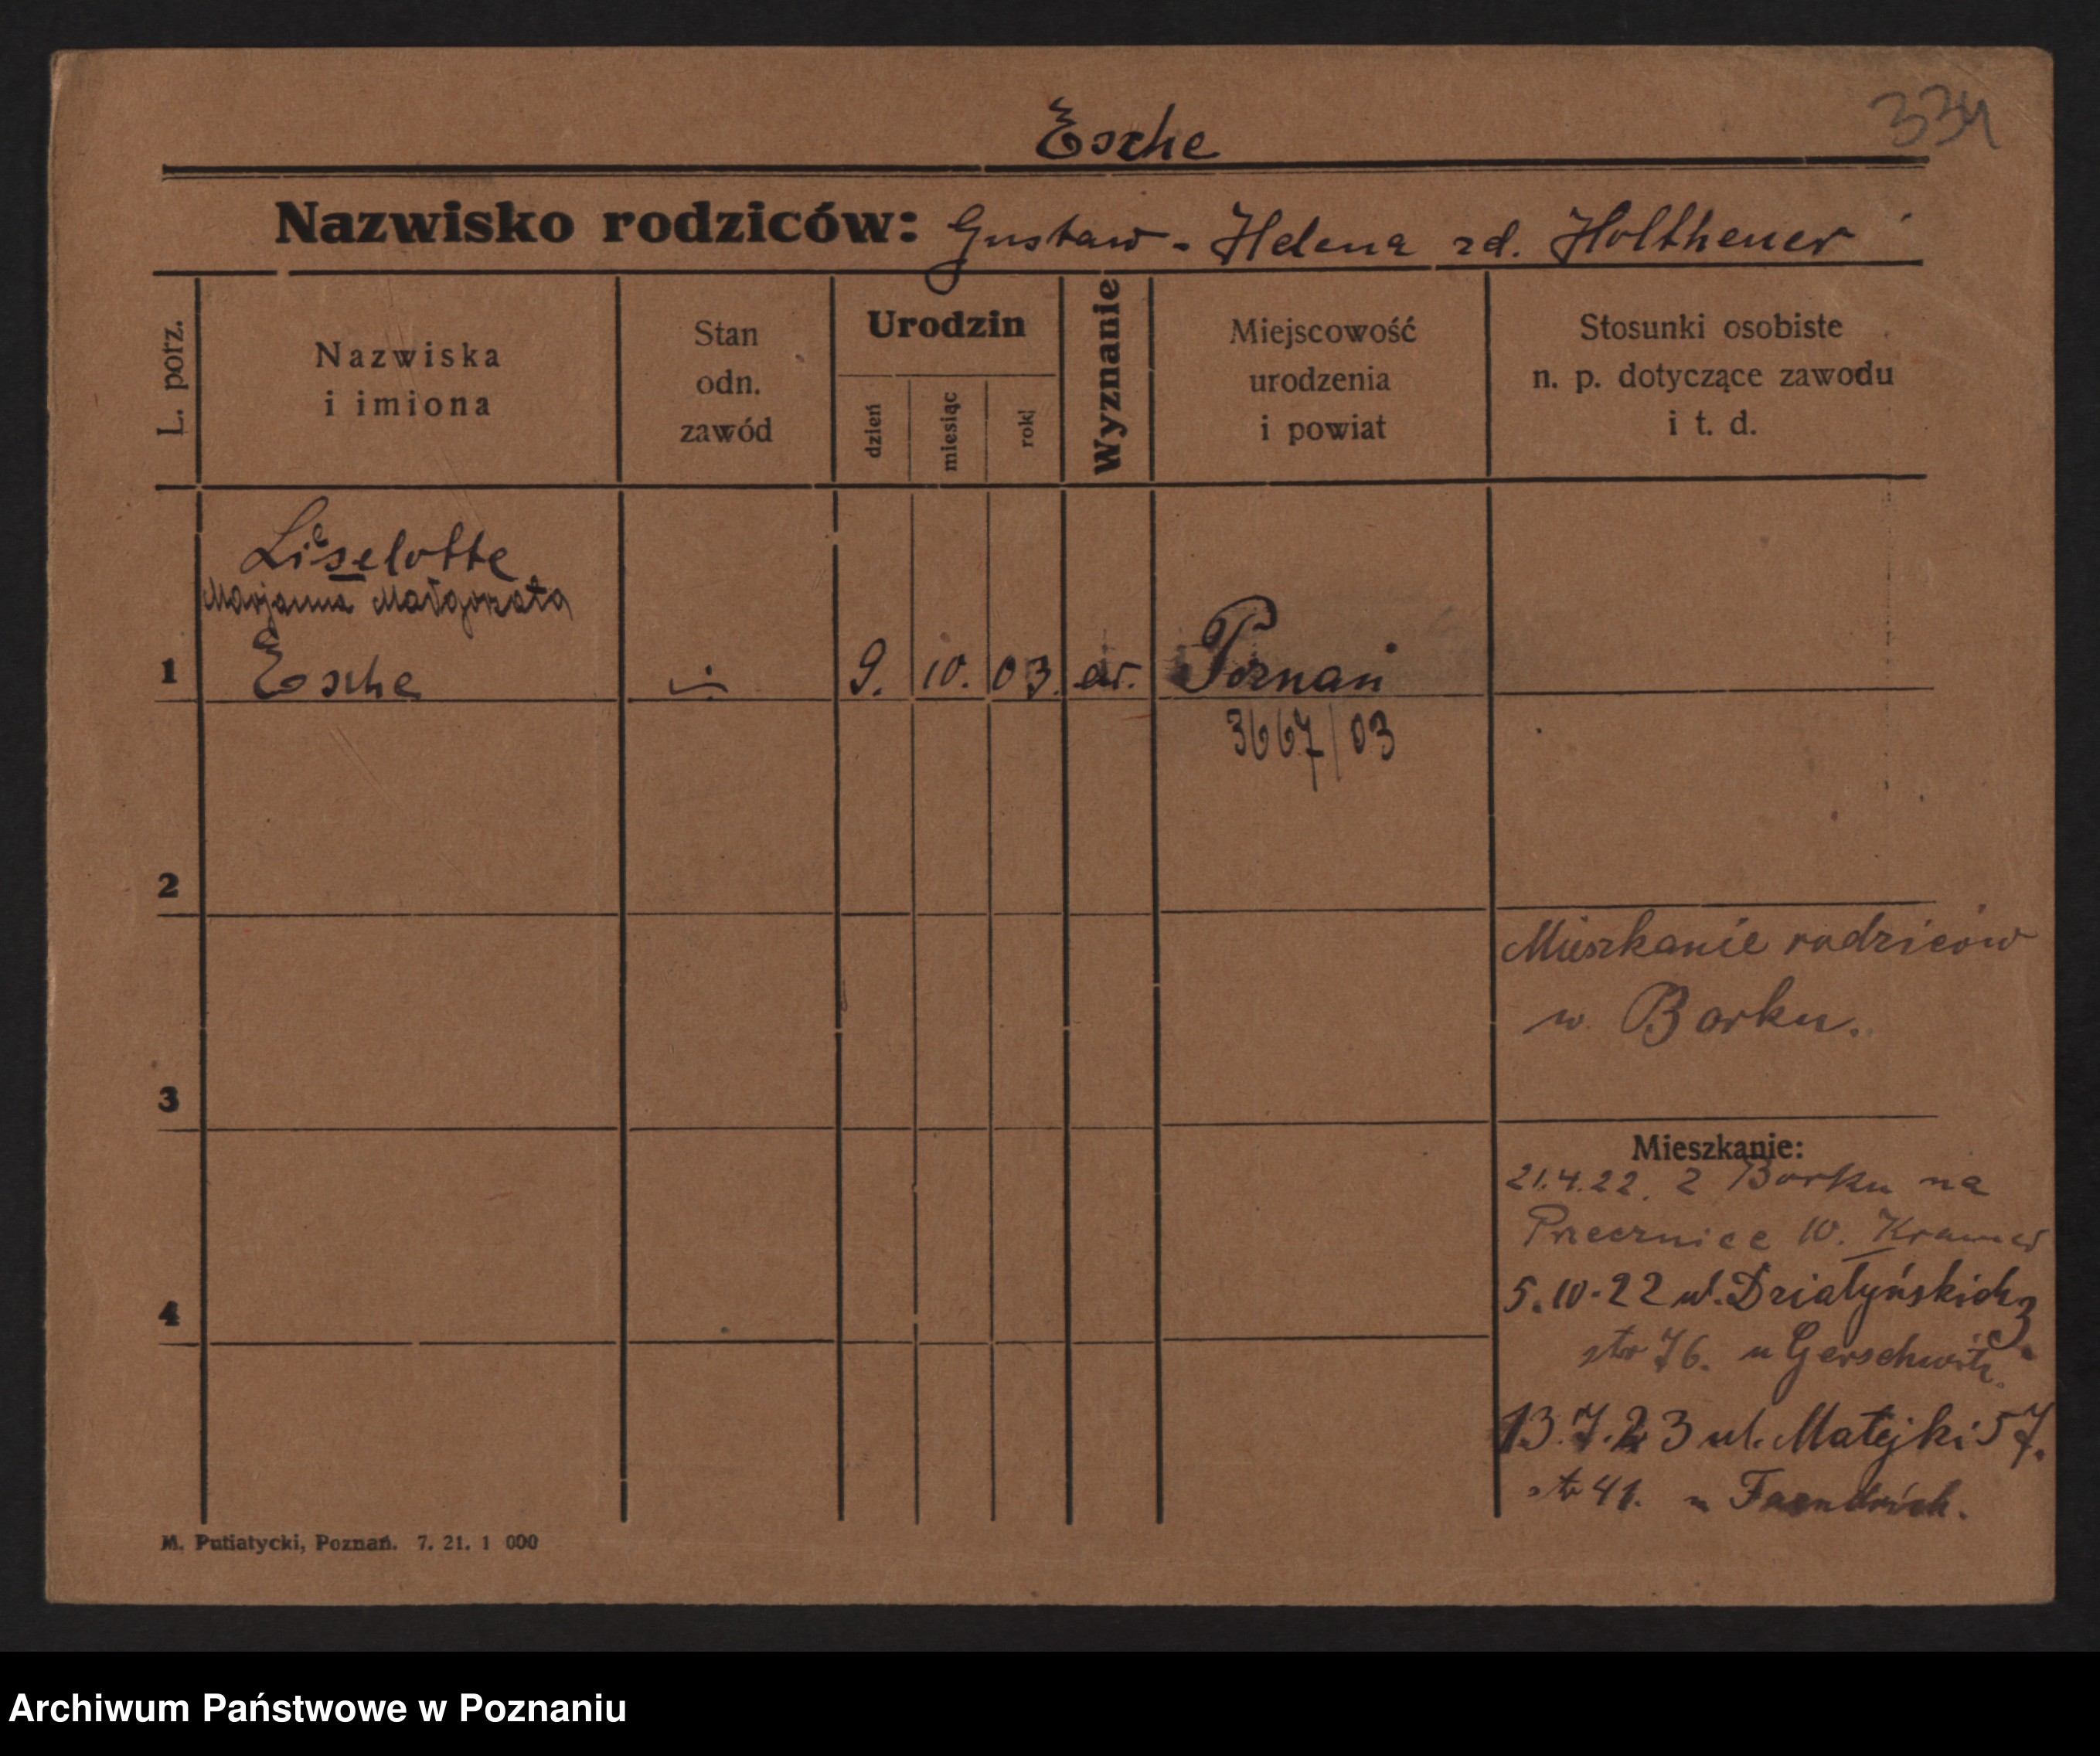 334
Esche
Nazwisko rodziców: Gustaw - Helena zd. Holtheuer
L. porz.
Nazwiska
i imiona
Stan
odn.
zawód
Urodzin
dzień
miesiąc
rok
Wyznanie
Miejscowość
urodzenia
i powiat
Stosunki osobiste
n. p. dotyczące zawodu
i t. d.
Lieselotte
Marjanna Małgorzata
1 Esche 9. 10. 03. ew. Poznań
3667/03
2
Mieszkanie rodziców
w Borku.
3
Mieszkanie:
21.4.22. z Borku na
Przecznice 10. Kramer
5.10.22 ul. Działyńskich 3.
str 76. u
4
13.7.23 ul. Matejki 57.
str 41. u
M. Putiatycki, Poznań. 7. 21. 1 000
Archiwum Państwowe w Poznaniu